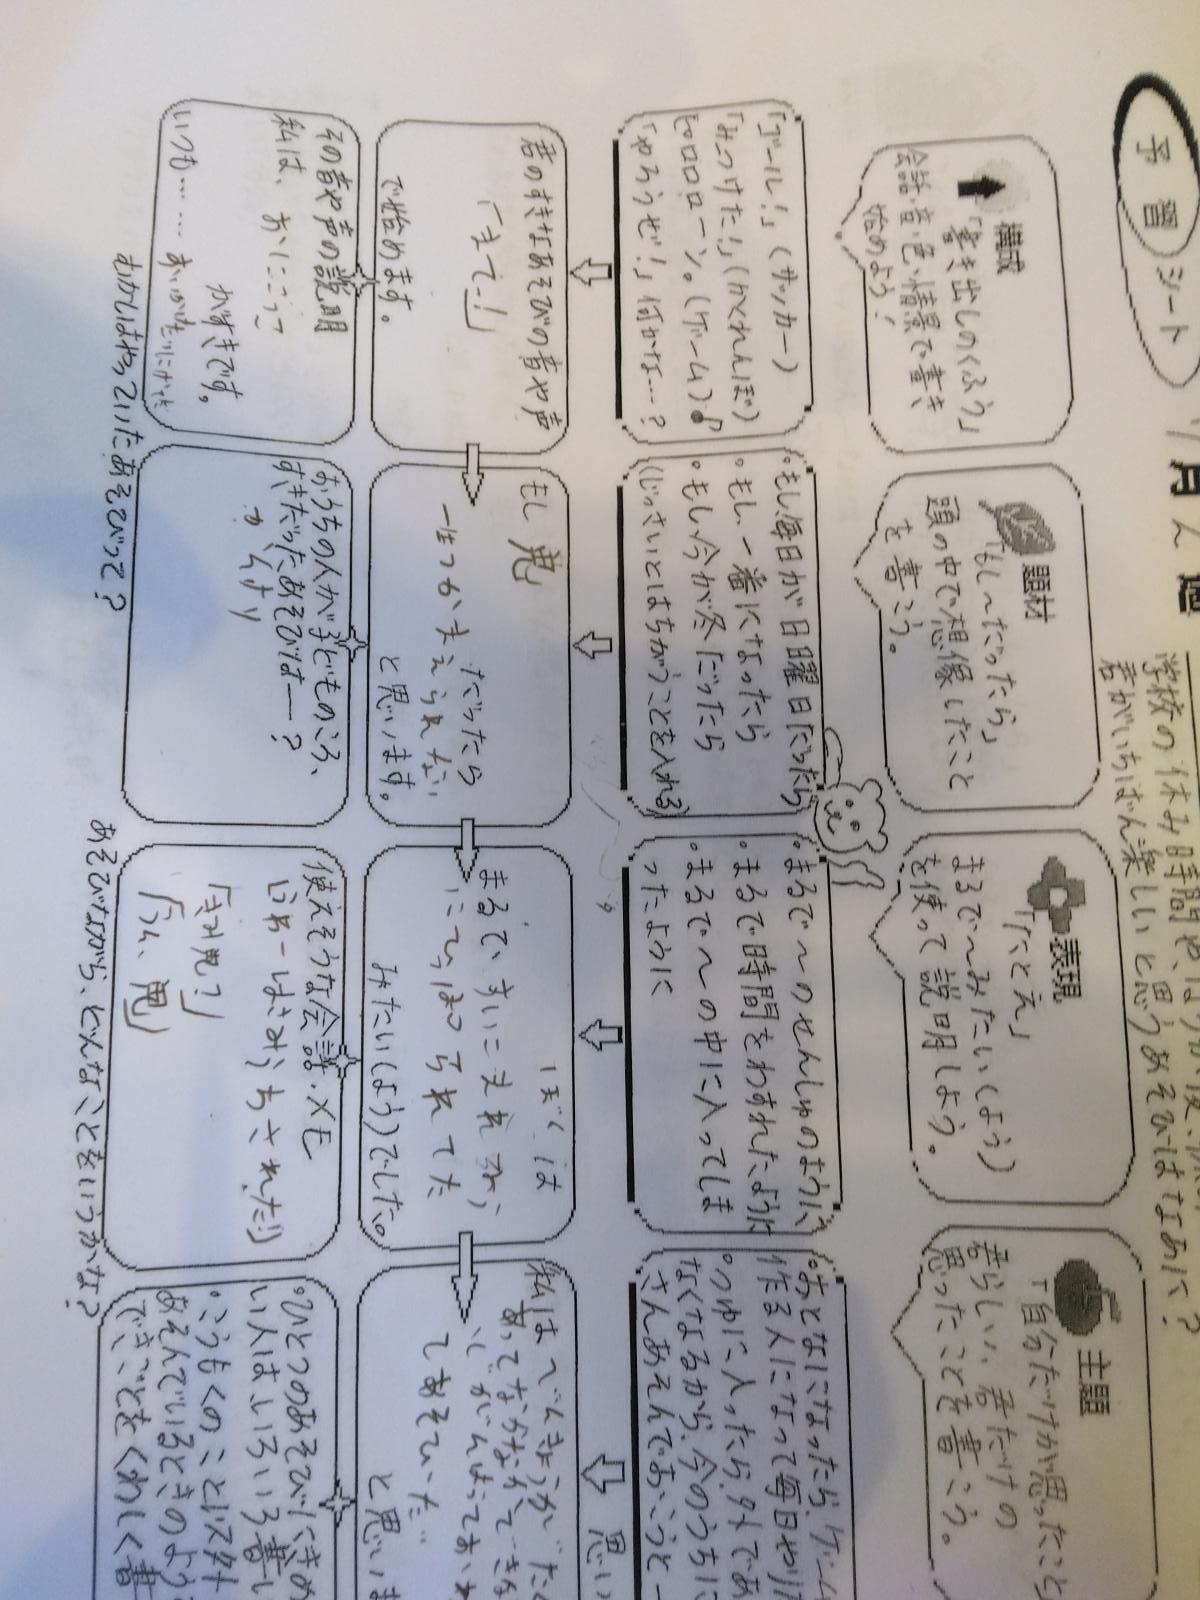 予習シート
学校の休み時間や
君がいちばん楽しいと思うあそびはなあに？
構成
「書き出しのくふう」
会話・音・色・情景で書き
始めよう！
題材
「もし～だったら」
頭の中で想像したこと
を書こう。
表現
「たとえ」
まるで～みたい（よう）
を使って説明しよう。
主題
「自分だけが思ったこと
君らしい、君だけの
思ったことを書こう。
「ゴール！」（サッカー）
「みつけた！」（かくれんぼ）
ピロロローン。（ゲーム）♪
「やろうぜ！」何かな…？
・もし毎日が日曜日だったら
・もし、一番になったら
・もし、今が冬だったら
（じっさいとはちがうことを入れる）
・まるで～のせんしゅのように
・まるで時間をわすれたように
・まるで～の中に入ってしま
ったように
・おとなになったら、ゲーム
作る人になって毎日や
・つゆに入ったら、外であ
なくなるから、今のうちに
さんあそんでおこうと
君のすきなあそびの音や声
「まてー！」
で始めます。
もし鬼
だったら
一生つかまえられない
と思います。
ぼくは
まるで、
みたい（よう）でした。
私は
してあそびたい
と思いま
その音や声の説明
私は、おにごっこ
がすきです。
いつも……
むかしはやっていたあそびって？
おうちの人が子どものころ、
すきだったあそびは――？
かんけり
使えそうな会話・メモ
「きみ鬼？」
「うん、鬼」
あそびながら、どんなことをいうかな？
・ひとつのあそびにきめ
い人はいろいろ書い
・こうもくのこと以外
あそんでいるときのよう
できごとをくわしく書